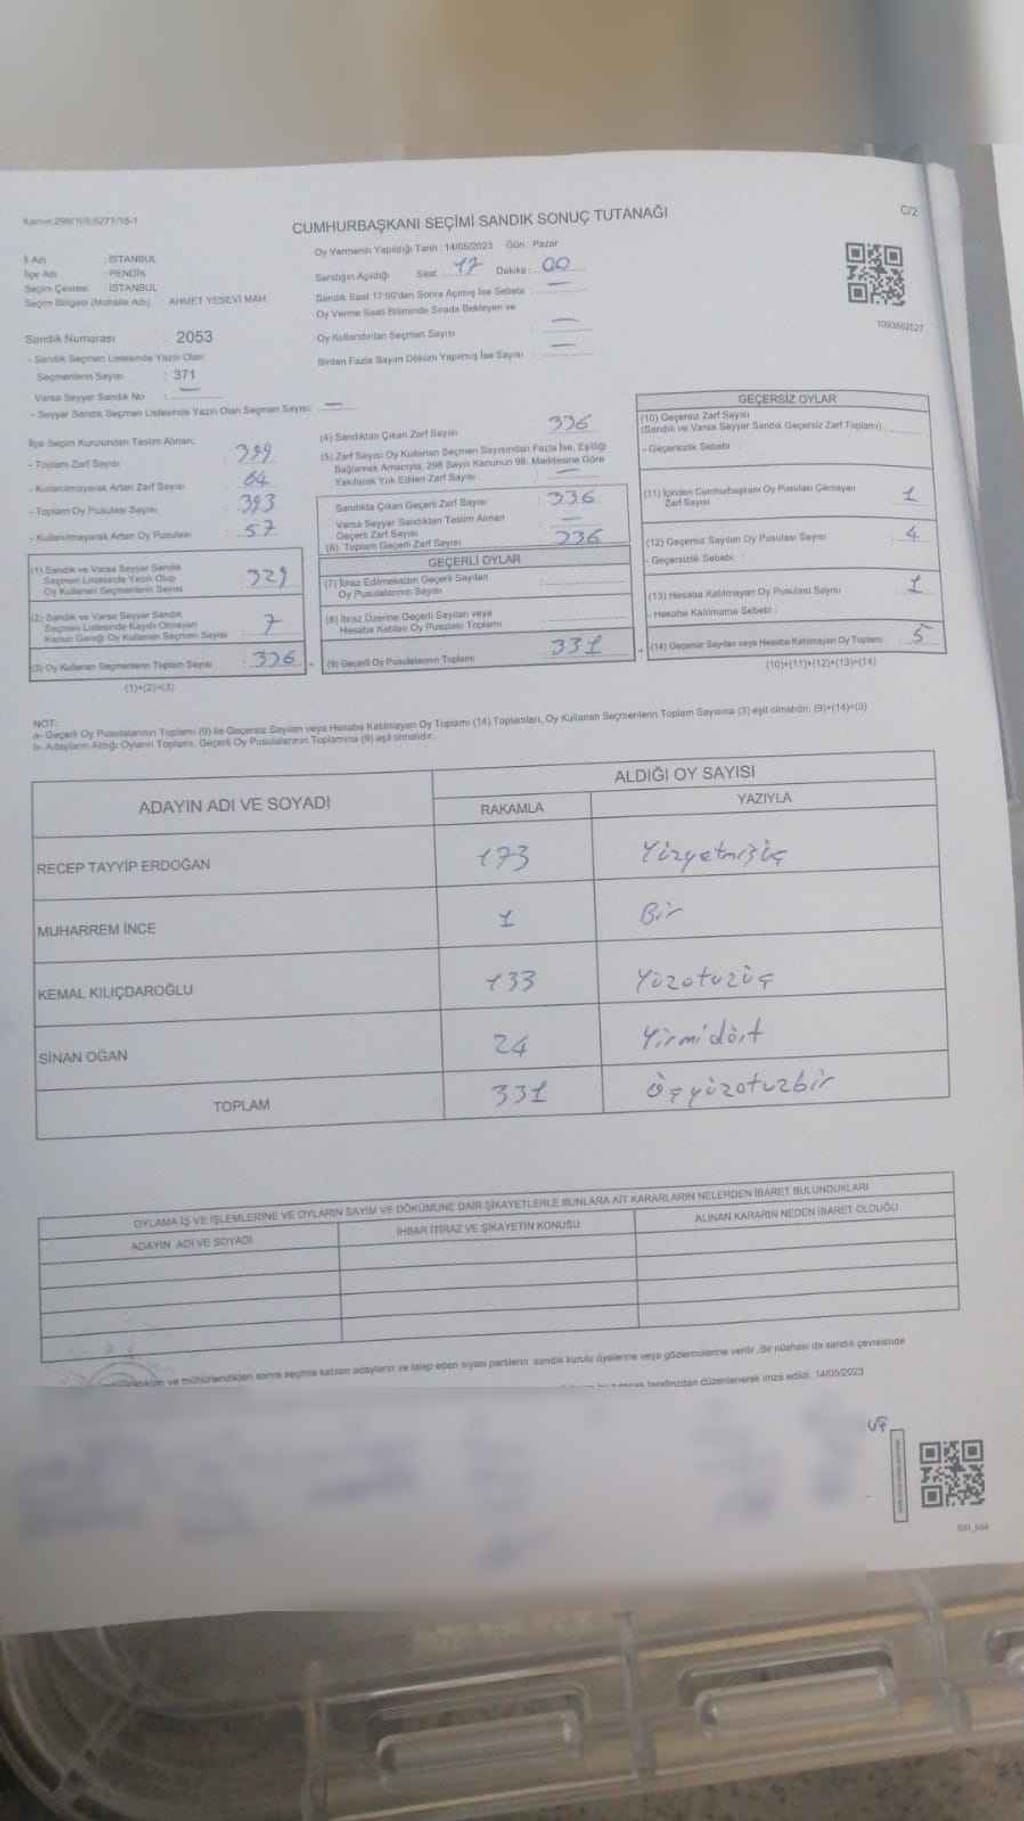 Kanun:298/
C/2
CUMHURBAŞKANI SEÇİMİ SANDIK SONUÇ TUTANAĞI
İl Adı : İSTANBUL
İlçe Adı : PENDİK
Seçim Çevresi : İSTANBUL
Seçim Bölgesi (Mahalle Adı) : AHMET YESEVİ MAH.
Sandık Numarası : 2053
- Sandık Seçmen Listesinde Yazılı Olan
Seçmenlerin Sayısı : 371
Varsa Seyyar Sandık No : —
- Seyyar Sandık Seçmen Listesinde Yazılı Olan Seçmen Sayısı : —
Oy Vermenin Yapıldığı Tarih : 14/05/2023 Gün : Pazar
Sandığın Açıldığı Saat : 17 Dakika : 00
Sandık Saat 17:00'den Sonra Açılmış İse Sebebi : —
Oy Verme Saati Bitiminde Sırada Bekleyen ve
Oy Kullandırılan Seçmen Sayısı : —
Birden Fazla Sayım Döküm Yapılmış İse Sayısı : —
İlçe Seçim Kurulundan Teslim Alınan;
- Toplam Zarf Sayısı
- Kullanılmayarak Artan Zarf Sayısı : 64
- Toplam Oy Pusulası Sayısı : 393
- Kullanılmayarak Artan Oy Pusulası : 57
(1) Sandık ve Varsa Seyyar Sandık
Seçmen Listesinde Yazılı Olup
Oy Kullanan Seçmenlerin Sayısı : 329
(2) Sandık ve Varsa Seyyar Sandık
Seçmen Listesinde Kayıtlı Olmayan
Kanun Gereği Oy Kullanan Seçmen Sayısı : 7
(3) Oy Kullanan Seçmenlerin Toplam Sayısı : 336
(1)+(2)=(3)
(4) Sandıktan Çıkan Zarf Sayısı : 336
(5) Zarf Sayısı Oy Kullanan Seçmen Sayısından Fazla İse, Eşitliği
Bağlamak Amacıyla, 298 Sayılı Kanunun 98. Maddesine Göre
Yakılarak Yok Edilen Zarf Sayısı : —
Sandıkta Çıkan Geçerli Zarf Sayısı : 336
Varsa Seyyar Sandıktan Teslim Alınan
Geçerli Zarf Sayısı : —
(6) Toplam Geçerli Zarf Sayısı : 336
GEÇERLİ OYLAR
(7) İtiraz Edilmeksizin Geçerli Sayılan
Oy Pusulalarının Sayısı
(8) İtiraz Üzerine Geçerli Sayılan veya
Hesaba Katılan Oy Pusulası Toplamı
(9) Geçerli Oy Pusulalarının Toplamı : 331
GEÇERSİZ OYLAR
(10) Geçersiz Zarf Sayısı
(Sandık ve Varsa Seyyar Sandık Geçersiz Zarf Toplamı)
- Geçersizlik Sebebi
(11) İçinden Cumhurbaşkanı Oy Pusulası Çıkmayan
Zarf Sayısı 1
(12) Geçersiz Sayılan Oy Pusulası Sayısı 4
- Geçersizlik Sebebi
(13) Hesaba Katılmayan Oy Pusulası Sayısı 1
- Hesaba Katılmama Sebebi :
(14) Geçersiz Sayılan veya Hesaba Katılmayan Oy Toplamı : 5
(10)+(11)+(12)+(13)=(14)
NOT:
a- Geçerli Oy Pusulalarının Toplamı (9) ile Geçersiz Sayılan veya Hesaba Katılmayan Oy Toplamı (14) Toplamları, Oy Kullanan Seçmenlerin Toplam Sayısına (3) eşit olmalıdır. (9)+(14)=(3)
b- Adayların Aldığı Oyların Toplamı, Geçerli Oy Pusulalarının Toplamına (9) eşit olmalıdır.
ADAYIN ADI VE SOYADI
ALDIĞI OY SAYISI
RAKAMLA YAZIYLA
RECEP TAYYİP ERDOĞAN 173 Yüzyetmişüç
MUHARREM İNCE 1 Bir
KEMAL KILIÇDAROĞLU 133 Yüzotuzüç
SİNAN OĞAN 24 Yirmidört
TOPLAM 331 Üçyüzotuzbir
OYLAMA İŞ VE İŞLEMLERİNE VE OYLARIN SAYIM VE DÖKÜMÜNE DAİR ŞİKAYETLERLE BUNLARA AİT KARARLARIN NELERDEN İBARET BULUNDUKLARI
ADAYIN ADI VE SOYADI İHBAR İTİRAZ VE ŞİKAYETİN KONUSU ALINAN KARARIN NEDEN İBARET OLDUĞU
ve mühürlendikten sonra seçime katılan adayların ve talep eden siyasi partilerin sandık kurulu üyelerine veya gözlemcilerine verilir. Bir nüshası da sandık çevresinde
tarafımızdan düzenlenerek imza edildi. 14/05/2023